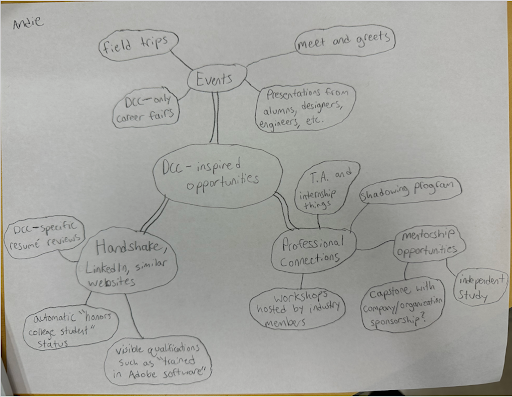 Andie
field trips
meet and greets
Events
DCC-only
career fairs
Presentations from
alumns, designers,
engineers, etc.
DCC-inspired
opportunities
T.A. and
internship
things
Shadowing program
DCC-specific
resumé reviews
Handshake,
LinkedIn, similar
websites
Professional
Connections
mentorship
opportunities
automatic "honors
college student"
status
workshops
hosted by industry
members
Capstone with
company/organization
sponsorship?
independent
study
visible qualifications
such as "trained
in Adobe software"